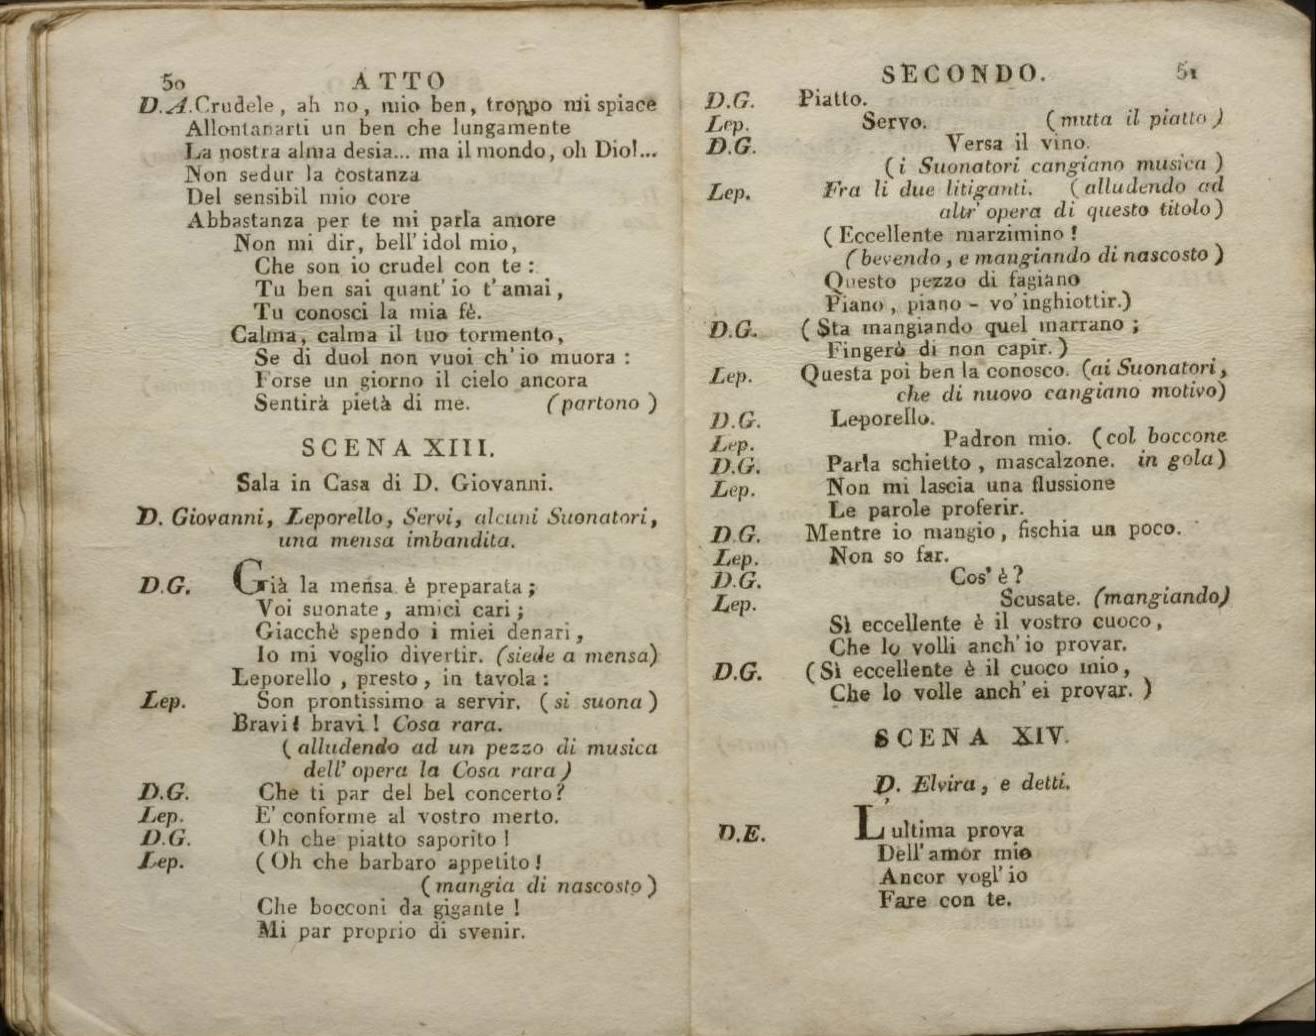 50 ATTO
D.A. Crudele, ah no, mio ben, troppo mi spiace
Allontanarti un ben che lungamente
La nostra alma desia... ma il mondo, oh Dio!...
Non sedur la costanza
Del sensibil mio core
Abbastanza per te mi parla amore
Non mi dir, bell' idol mio,
Che son io crudel con te:
Tu ben sai quant' io t' amai,
Tu conosci la mia fè.
Calma, calma il tuo tormento,
Se di duol non vuoi ch' io muora:
Forse un giorno il cielo ancora
Sentirà pietà di me. (partono)
SCENA XIII.
Sala in Casa di D. Giovanni.
D. Giovanni, Leporello, Servi, alcuni Suonatori,
una mensa imbandita.
D.G. Già la mensa è preparata;
Voi suonate, amici cari;
Giacchè spendo i miei denari,
Io mi voglio divertir. (siede a mensa)
Leporello, presto, in tavola:
Lep. Son prontissimo a servir. (si suona)
Bravi! bravi! Cosa rara.
(alludendo ad un pezzo di musica
dell' opera la Cosa rara)
D.G. Che ti par del bel concerto?
Lep. E' conforme al vostro merto.
D.G. Oh che piatto saporito!
Lep. (Oh che barbaro appetito!
(mangia di nascosto)
Che bocconi da gigante!
Mi par proprio di svenir.
SECONDO. 51
D.G. Piatto.
Lep. Servo. (muta il piatto)
D.G. Versa il vino.
(i Suonatori cangiano musica)
Lep. Fra li due litiganti. (alludendo ad
altr' opera di questo titolo)
(Eccellente marzimino!
(bevendo, e mangiando di nascosto)
Questo pezzo di fagiano
Piano, piano - vo' inghiottir.)
D.G. (Sta mangiando quel marrano;
Fingerò di non capir.)
Lep. Questa poi ben la conosco. (ai Suonatori,
che di nuovo cangiano motivo)
D.G. Leporello.
Lep. Padron mio. (col boccone
D.G. Parla schietto, mascalzone. in gola)
Lep. Non mi lascia una flussione
Le parole proferir.
D.G. Mentre io mangio, fischia un poco.
Lep. Non so far.
D.G. Cos' è?
Lep. Scusate. (mangiando)
Sì eccellente è il vostro cuoco,
Che lo volli anch' io provar.
D.G. (Sì eccellente è il cuoco mio,
Che lo volle anch' ei provar.)
SCENA XIV.
D. Elvira, e detti.
D.E. L'ultima prova
Dell' amor mio
Ancor vogl' io
Fare con te.